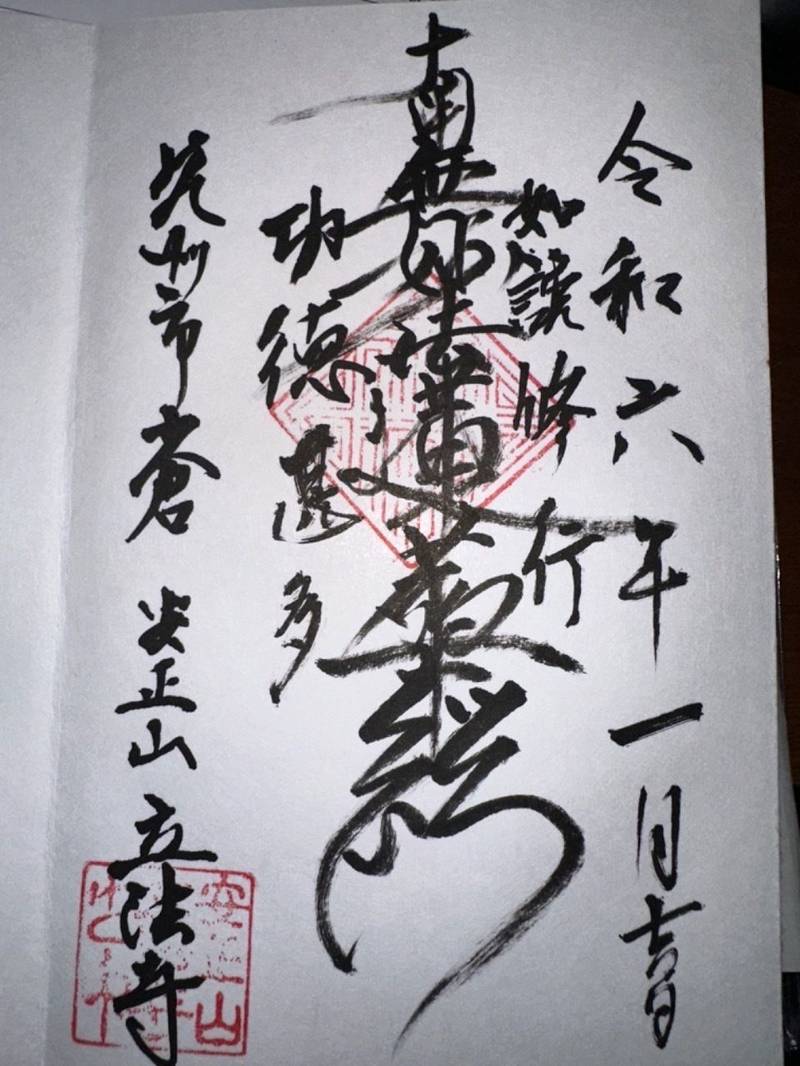 令和六年一月吉日
如説修行
南無妙法蓮華経
功徳甚多
北九州市小倉 安正山 立法寺